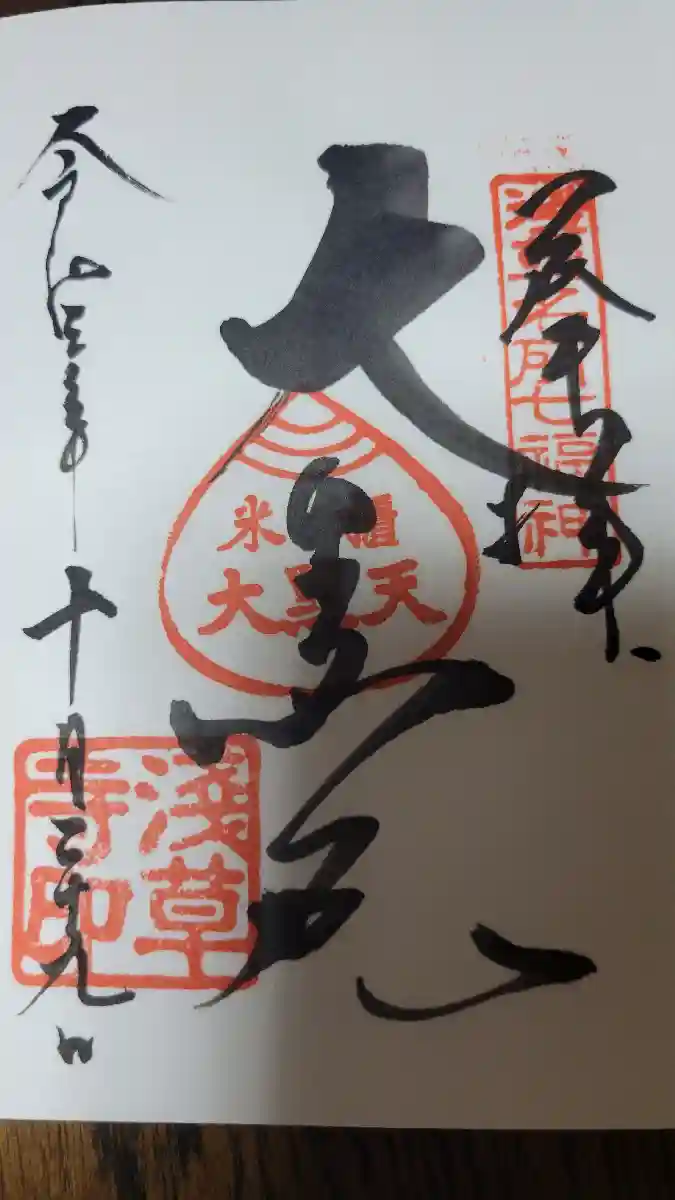 奉拝
淺草名所七福神
大黒天
米櫃
大黒天
令和四年十月二十九日
淺草
寺印